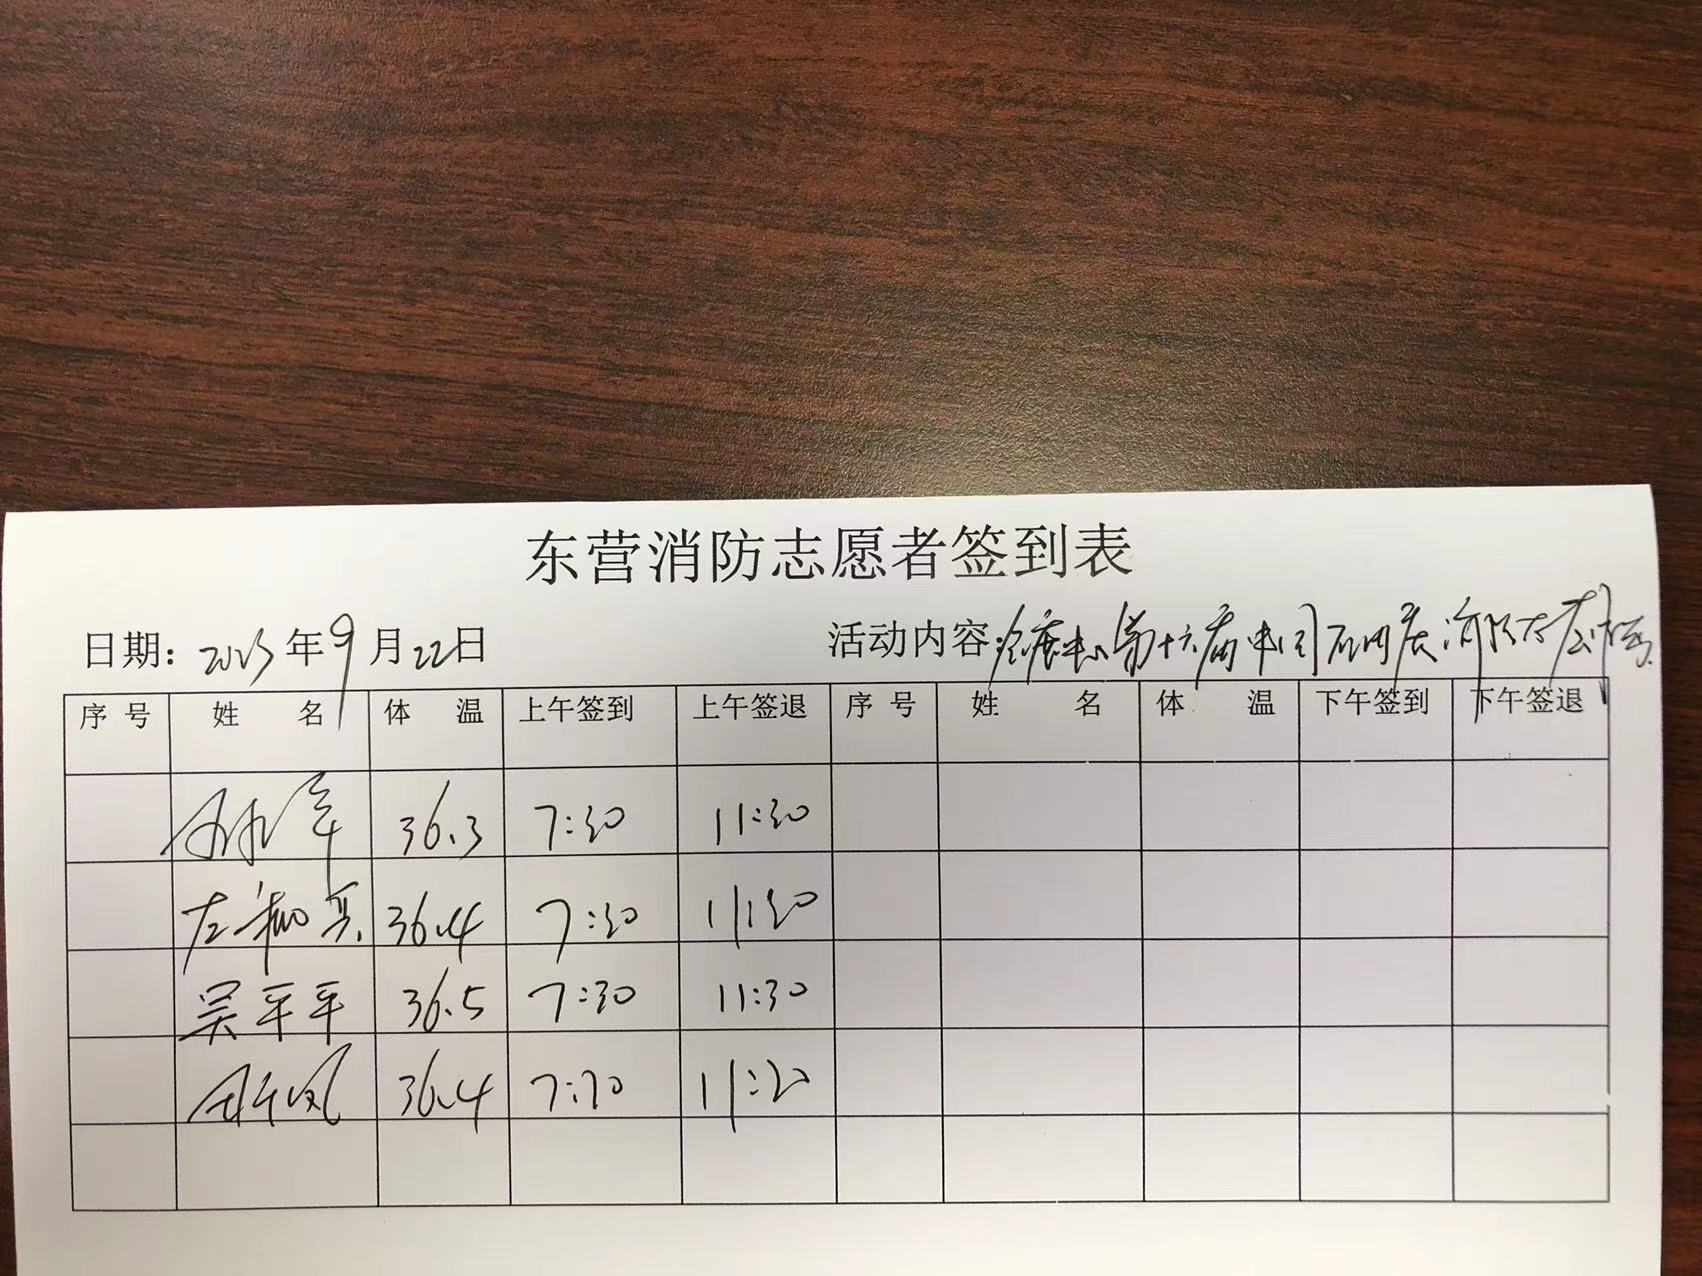 东营消防志愿者签到表
日期: 2023年9月22日 活动内容: 会展中心第十六届中国石油
序号 姓名 体温 上午签到 上午签退 序号 姓名 体温 下午签到 下午签退
36.3 7:30 11:30
左 36.4 7:30 11:30
吴平平 36.5 7:30 11:30
36.4 7:30 11:30